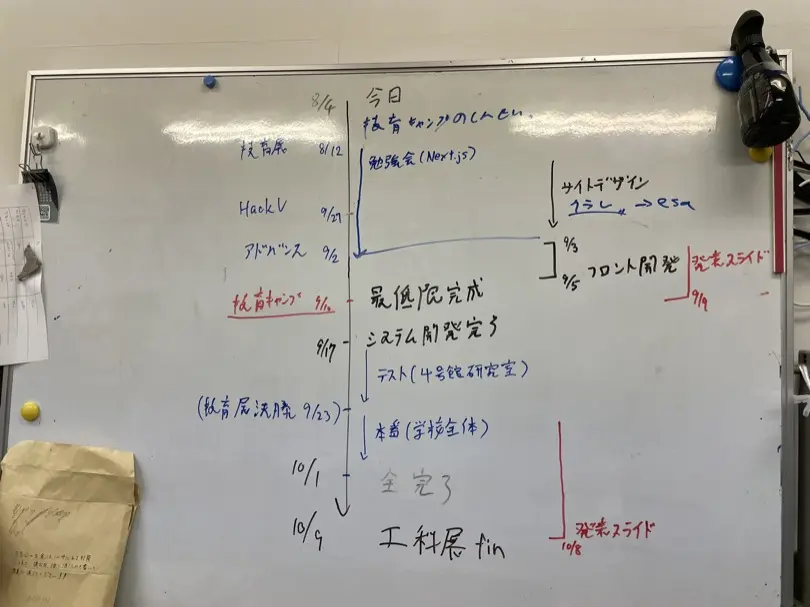 8/4 今日
技育キャンプのしんせい.
技育展 8/12 勉強会(Next.js)
サイトデザイン
チラし →esa
HackV 9/27
アドバンス 9/2
9/3
9/5 フロント開発
発表スライド
9/9
技育キャンプ 最低限完成
9/17 システム開発完了
テスト(4号館研究室)
(技育展決勝 9/23)
本番(学校全体)
10/1 全完了
10/9 工科展 fin
発表スライド
10/8